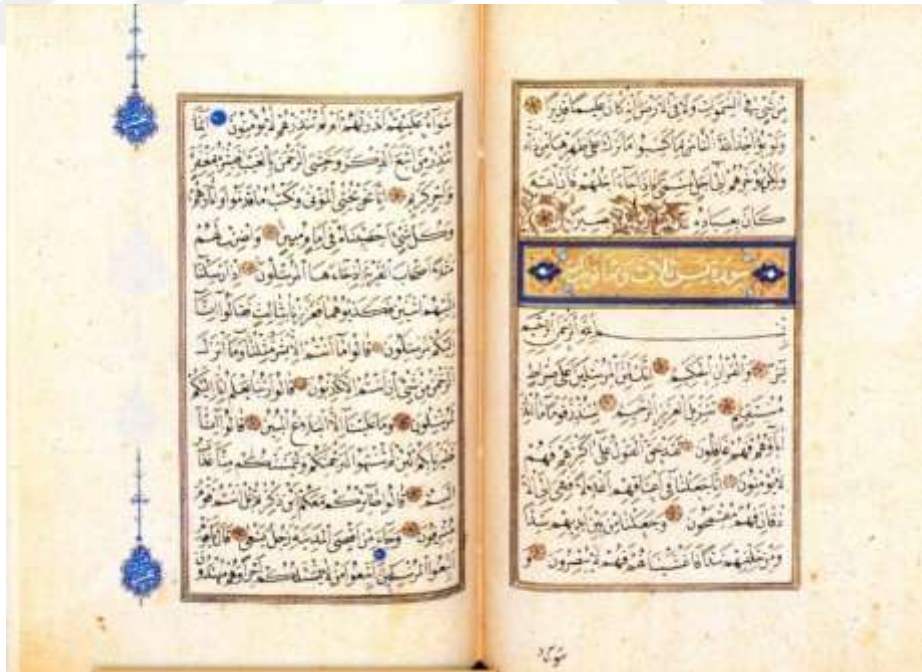 مِنْ شَيْءٍ فِي السَّمٰوَاتِ وَلَا فِي الْاَرْضِ اِنَّهُ كَانَ عَلِيمًا قَدِيرًا
وَلَوْ يُؤَاخِذُ اللّٰهُ النَّاسَ بِمَا كَسَبُوا مَا تَرَكَ عَلٰى ظَهْرِهَا مِنْ دَابَّةٍ
وَلٰكِنْ يُؤَخِّرُهُمْ اِلٰى اَجَلٍ مُسَمًّى فَاِذَا جَاءَ اَجَلُهُمْ فَاِنَّ اللّٰهَ
كَانَ بِعِبَادِهِ بَصِيرًا
سورة يس ثلاث وثمانون اية
بِسْمِ اللّٰهِ الرَّحْمٰنِ الرَّحِيمِ
يٰسٓ وَالْقُرْاٰنِ الْحَكِيمِ اِنَّكَ لَمِنَ الْمُرْسَلِينَ عَلٰى صِرَاطٍ
مُسْتَقِيمٍ تَنْزِيلَ الْعَزِيزِ الرَّحِيمِ لِتُنْذِرَ قَوْمًا مَا اُنْذِرَ
اٰبَاؤُهُمْ فَهُمْ غَافِلُونَ لَقَدْ حَقَّ الْقَوْلُ عَلٰى اَكْثَرِهِمْ فَهُمْ
لَا يُؤْمِنُونَ اِنَّا جَعَلْنَا فِي اَعْنَاقِهِمْ اَغْلَالًا فَهِيَ اِلَى الْاَ
ذْقَانِ فَهُمْ مُقْمَحُونَ وَجَعَلْنَا مِنْ بَيْنِ اَيْدِيهِمْ سَدًّا
وَمِنْ خَلْفِهِمْ سَدًّا فَاَغْشَيْنَاهُمْ فَهُمْ لَا يُبْصِرُونَ وَ
سَوَاءٌ عَلَيْهِمْ ءَاَنْذَرْتَهُمْ اَمْ لَمْ تُنْذِرْهُمْ لَا يُؤْمِنُونَ اِنَّمَا
تُنْذِرُ مَنِ اتَّبَعَ الذِّكْرَ وَخَشِيَ الرَّحْمٰنَ بِالْغَيْبِ فَبَشِّرْهُ بِمَغْفِرَةٍ
وَاَجْرٍ كَرِيمٍ اِنَّا نَحْنُ نُحْيِي الْمَوْتٰى وَنَكْتُبُ مَا قَدَّمُوا وَاٰثَارَهُمْ
وَكُلَّ شَيْءٍ اَحْصَيْنَاهُ فِي اِمَامٍ مُبِينٍ وَاضْرِبْ لَهُمْ
مَثَلًا اَصْحَابَ الْقَرْيَةِ اِذْ جَاءَهَا الْمُرْسَلُونَ اِذْ اَرْسَلْنَا
اِلَيْهِمُ اثْنَيْنِ فَكَذَّبُوهُمَا فَعَزَّزْنَا بِثَالِثٍ فَقَالُوا اِنَّا
اِلَيْكُمْ مُرْسَلُونَ قَالُوا مَا اَنْتُمْ اِلَّا بَشَرٌ مِثْلُنَا وَمَا اَنْزَلَ
الرَّحْمٰنُ مِنْ شَيْءٍ اِنْ اَنْتُمْ اِلَّا تَكْذِبُونَ قَالُوا رَبُّنَا يَعْلَمُ اِنَّا اِلَيْكُمْ
لَمُرْسَلُونَ وَمَا عَلَيْنَا اِلَّا الْبَلَاغُ الْمُبِينُ قَالُوا اِنَّا
تَطَيَّرْنَا بِكُمْ لَئِنْ لَمْ تَنْتَهُوا لَنَرْجُمَنَّكُمْ وَلَيَمَسَّنَّكُمْ مِنَّا عَذَابٌ
اَلِيمٌ قَالُوا طَائِرُكُمْ مَعَكُمْ اَئِنْ ذُكِّرْتُمْ بَلْ اَنْتُمْ قَوْمٌ
مُسْرِفُونَ وَجَاءَ مِنْ اَقْصَا الْمَدِينَةِ رَجُلٌ يَسْعٰى قَالَ يَا قَوْمِ
اتَّبِعُوا الْمُرْسَلِينَ اتَّبِعُوا مَنْ لَا يَسْـَٔلُكُمْ اَجْرًا وَهُمْ مُهْتَدُونَ